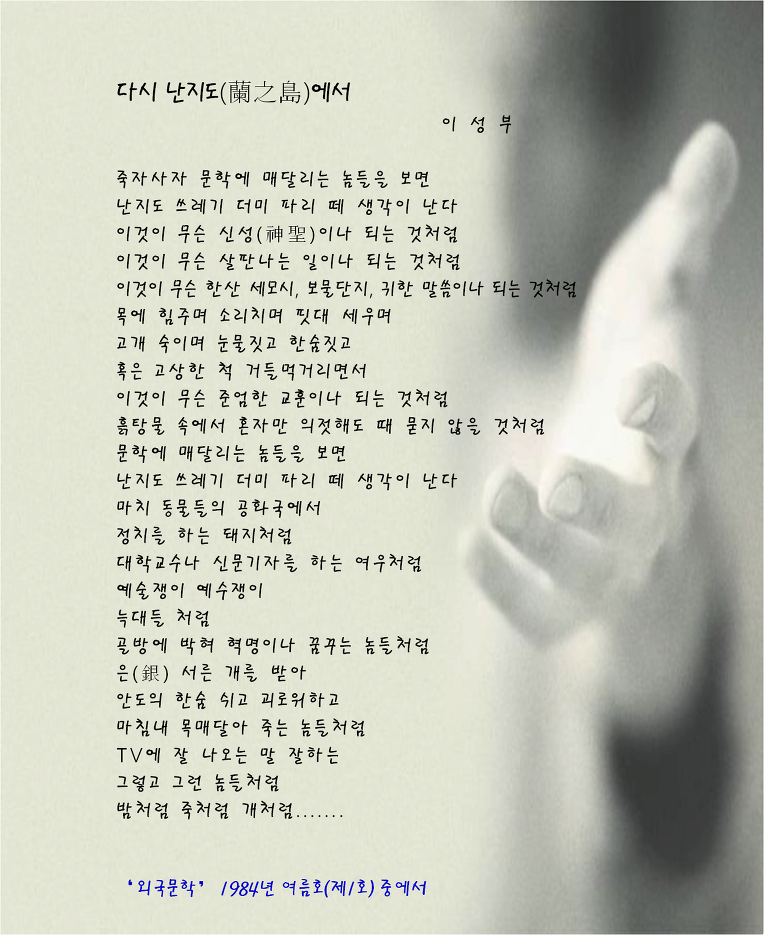 다시 난지도(蘭之島)에서
이 성 부
죽자사자 문학에 매달리는 놈들을 보면
난지도 쓰레기 더미 파리 떼 생각이 난다
이것이 무슨 신성(神聖)이나 되는 것처럼
이것이 무슨 살판나는 일이나 되는 것처럼
이것이 무슨 한산 세모시, 보물단지, 귀한 말씀이나 되는 것처럼
목에 힘주며 소리치며 핏대 세우며
고개 숙이며 눈물짓고 한숨짓고
혹은 고상한 척 거들먹거리면서
이것이 무슨 준엄한 교훈이나 되는 것처럼
흙탕물 속에서 혼자만 의젓해도 때 묻지 않을 것처럼
문학에 매달리는 놈들을 보면
난지도 쓰레기 더미 파리 떼 생각이 난다
마치 동물들의 공화국에서
정치를 하는 돼지처럼
대학교수나 신문기자를 하는 여우처럼
예술쟁이 예수쟁이
늑대들 처럼
골방에 박혀 혁명이나 꿈꾸는 놈들처럼
은(銀) 서른 개를 받아
안도의 한숨 쉬고 괴로워하고
마침내 목매달아 죽는 놈들처럼
TV에 잘 나오는 말 잘하는
그렇고 그런 놈들처럼
밤처럼 죽처럼 개처럼.......
‘외국문학’ 1984년 여름호(제1호) 중에서